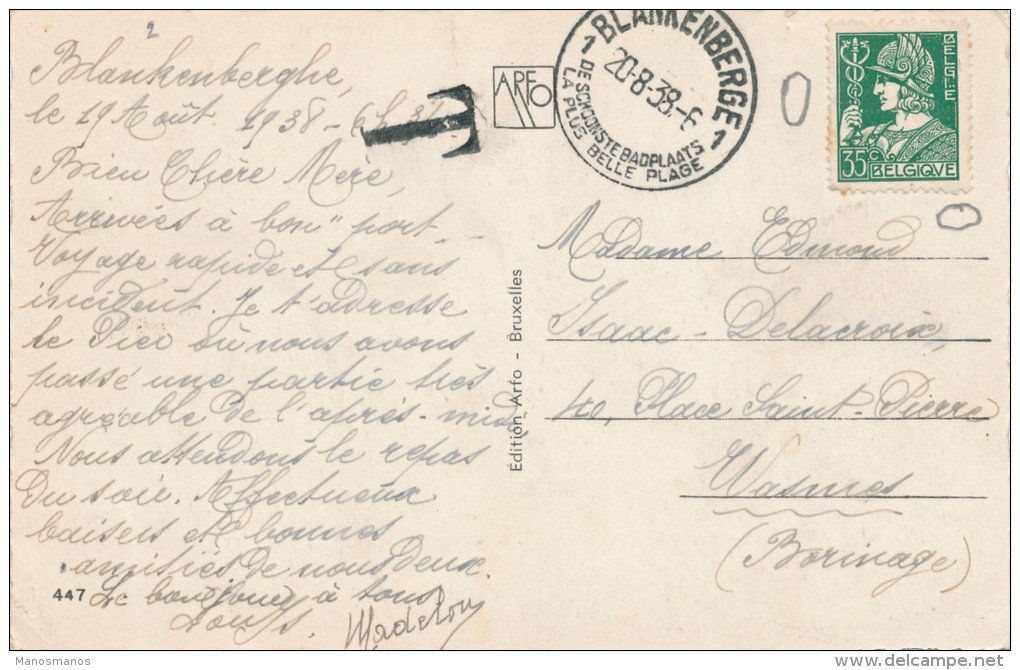 2
Blankenberghe,
le 19 Août 1938 - 6h
Bien Chère Mère,
Arrivées à bon port.
Voyage rapide et sans
incident. Je t'adresse
le Pier où nous avons
passé une partie très
agréable de l'après-midi
Nous attendons le repas
du soir. Affectueux
baisers et bonnes
amitiés de nous deux.
Le bonjour à tous
Madelon
447
T
ARFO
BLANKENBERGE
1 1
20-8-38.-6
DE SCHOONSTE BADPLAATS
LA PLUS BELLE PLAGE
BELGIE
35c BELGIQVE
0
0
Edition Arfo - Bruxelles
Madame Edmond
Isaac - Delacroix,
40, Place Saint-Pierre
Wasmes
(Borinage)
Manosmanos
delcampe.net